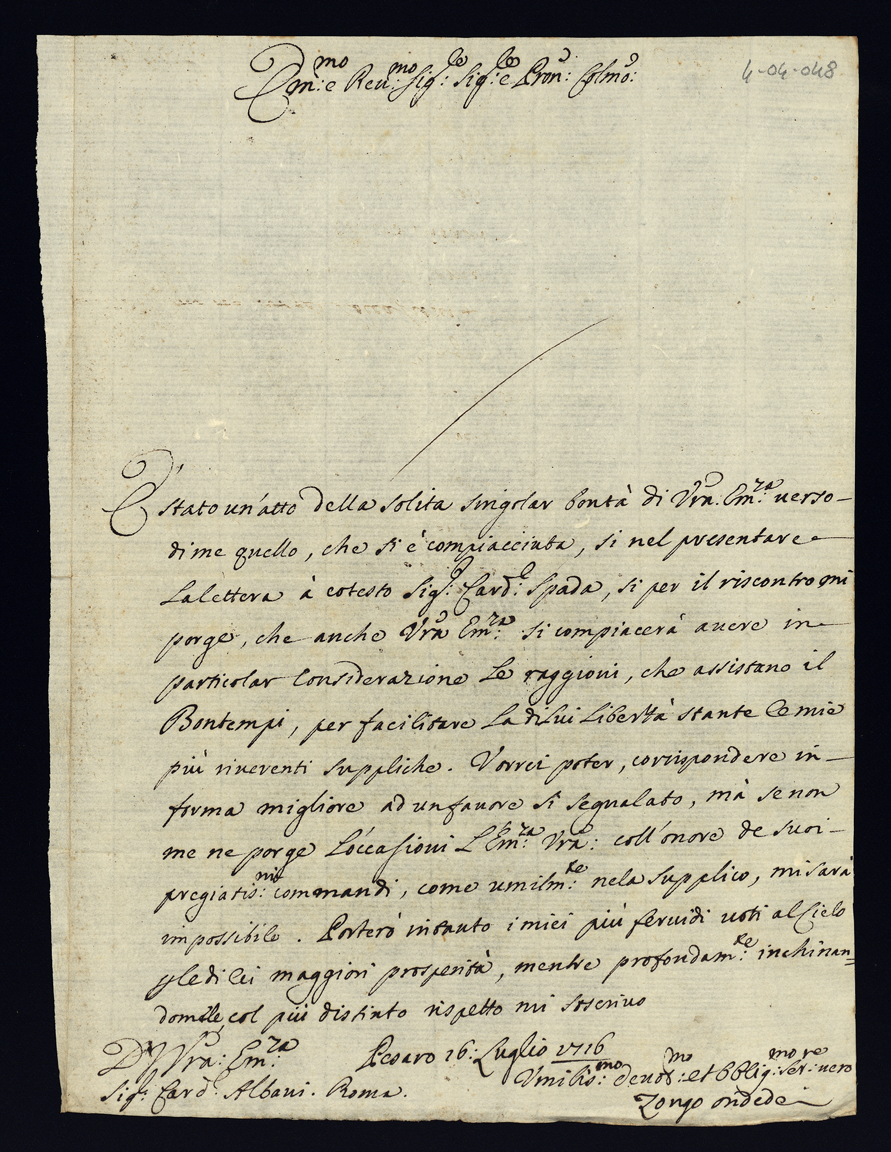 4-04-048
Em:mo e Reu:mo Sig:re Sig:re e Pron: Colmo:
È stato un'atto della solita singolar bontà di Vra. Em:za uerso
di me quello, che si è compiacciuta, si nel presentare
La lettera à cotesto Sig:r Card: Spada, si per il riscontro mi
porge, che anche Vra Em:za si compiacerà auere in
particolar Considerazione Le raggioni, che assistano il
Bontempi, per facilitare La di Lui Libertà stante Le mie
più riuerenti suppliche. Vorrei poter, corrispondere in
forma migliore ad un fauore si segnalato, mà se non
me ne porge L'occasioni L'Em:za Vra: coll'onore de suoi
pregiatis:mi commandi, come umilm:te nela supplico, mi sarà
impossibile. Porterò intanto i miei più feruidi uoti al Cielo
p le di lei maggiori prosperità, mentre profondam:te inchinan=
domele, col più distinto rispetto mi soscriuo
D V Vra: Em:za Pesaro 16: Luglio 1716
Sig:r Card: Albani. Roma. Vmilis:mo deuot:mo et obblig:mo ser:re uero
Zongo ondedei